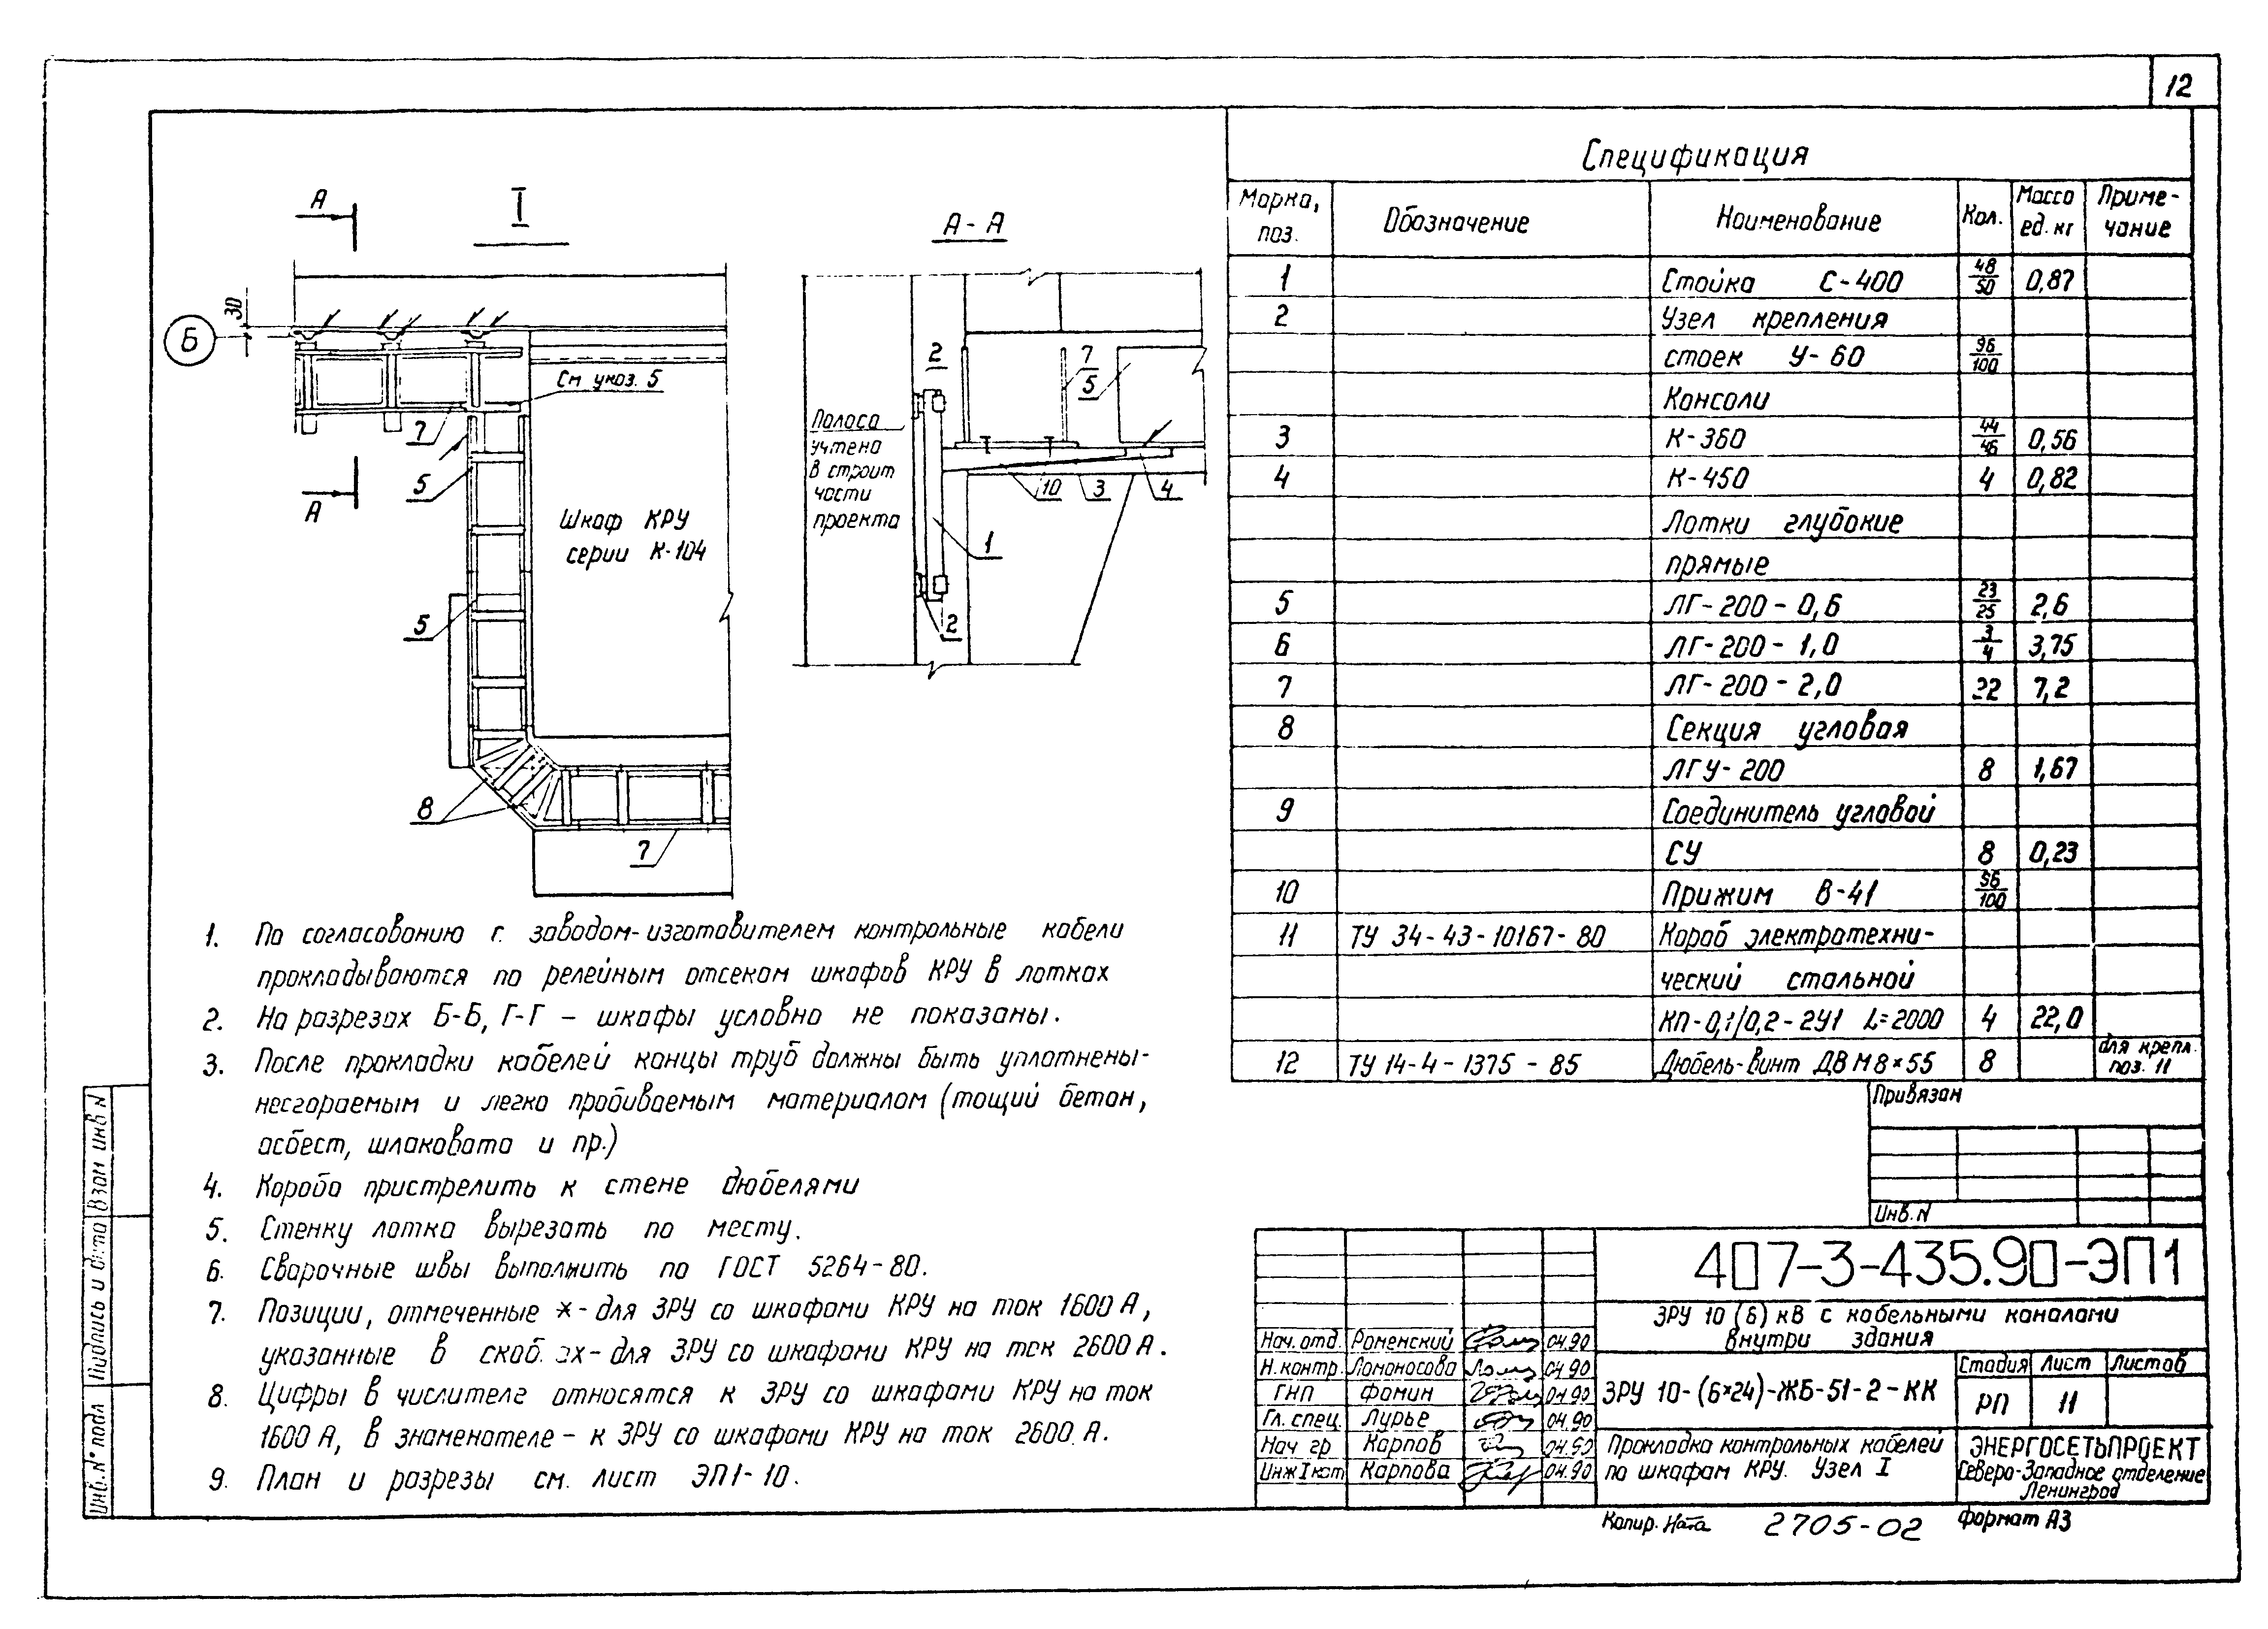 12
I
А
А
30
Б
См указ. 5
7
5
5
8
7
Шкаф КРУ
серии К-104
А-А
2
7
5
Полоса
учтена
в строит
части
проекта
10
3
4
1
2
1. По согласованию с заводом-изготовителем контрольные кабели
прокладываются по релейным отсекам шкафов КРУ в лотках
2. На разрезах Б-Б, Г-Г – шкафы условно не показаны.
3. После прокладки кабелей концы труб должны быть уплотнены-
несгораемым и легко пробиваемым материалом (тощий бетон,
асбест, шлаковата и пр.)
4. Короба пристрелить к стене дюбелями
5. Стенку лотка вырезать по месту.
6. Сварочные швы выполнить по ГОСТ 5264-80.
7. Позиции, отмеченные *- для ЗРУ со шкафами КРУ на ток 1600А,
указанные в скобках- для ЗРУ со шкафами КРУ на ток 2600А.
8. Цифры в числителе относятся к ЗРУ со шкафами КРУ на ток
1600А, в знаменателе – к ЗРУ со шкафами КРУ на ток 2600А.
9. План и разрезы см. лист ЭП1-10.
Спецификация
Марка, поз. Обозначение Наименование Кол. Масса ед. кг Приме-чание
1 Стойка С-400 48/50 0,87
2 Узел крепления
стоек У-60 96/100
Консоли
3 К-360 44/46 0,56
4 К-450 4 0,82
Лотки глубокие
прямые
5 ЛГ-200-0,6 23/25 2,6
6 ЛГ-200-1,0 3/4 3,75
7 ЛГ-200-2,0 22 7,2
8 Секция угловая
ЛГУ-200 8 1,67
9 Соединитель угловой
СУ 8 0,23
10 Прижим В-41 96/100
11 ТУ 34-43-10167-80 Короб электротехни-
ческий стальной
КП-0,1/0,2-2У1 L=2000 4 22,0
12 ТУ 14-4-1375-85 Дюбель-винт ДВ М8×55 8 для крепл. поз. 11
Привязан
Инв. N
407-3-435.90-ЭП1
ЗРУ 10 (6) кВ с кабельными каналами
внутри здания
Нач. отд. Роменский 04.90
Н. контр. Ломоносова 04.90
ГНП Фомин 04.90
Гл. спец. Лурье 04.90
Нач гр Карпов 04.90
Инж I кат Карпова 04.90
ЗРУ 10-(6×24)-ЖБ-51-2-КК
Стадия Лист Листов
РП 11
Прокладка контрольных кабелей
по шкафам КРУ. Узел I
ЭНЕРГОСЕТЬПРОЕКТ
Северо-Западное отделение
Ленинград
Копир. Ната 2705-02 формат А3
Инв. N° подл Подпись и дата Взам инв N